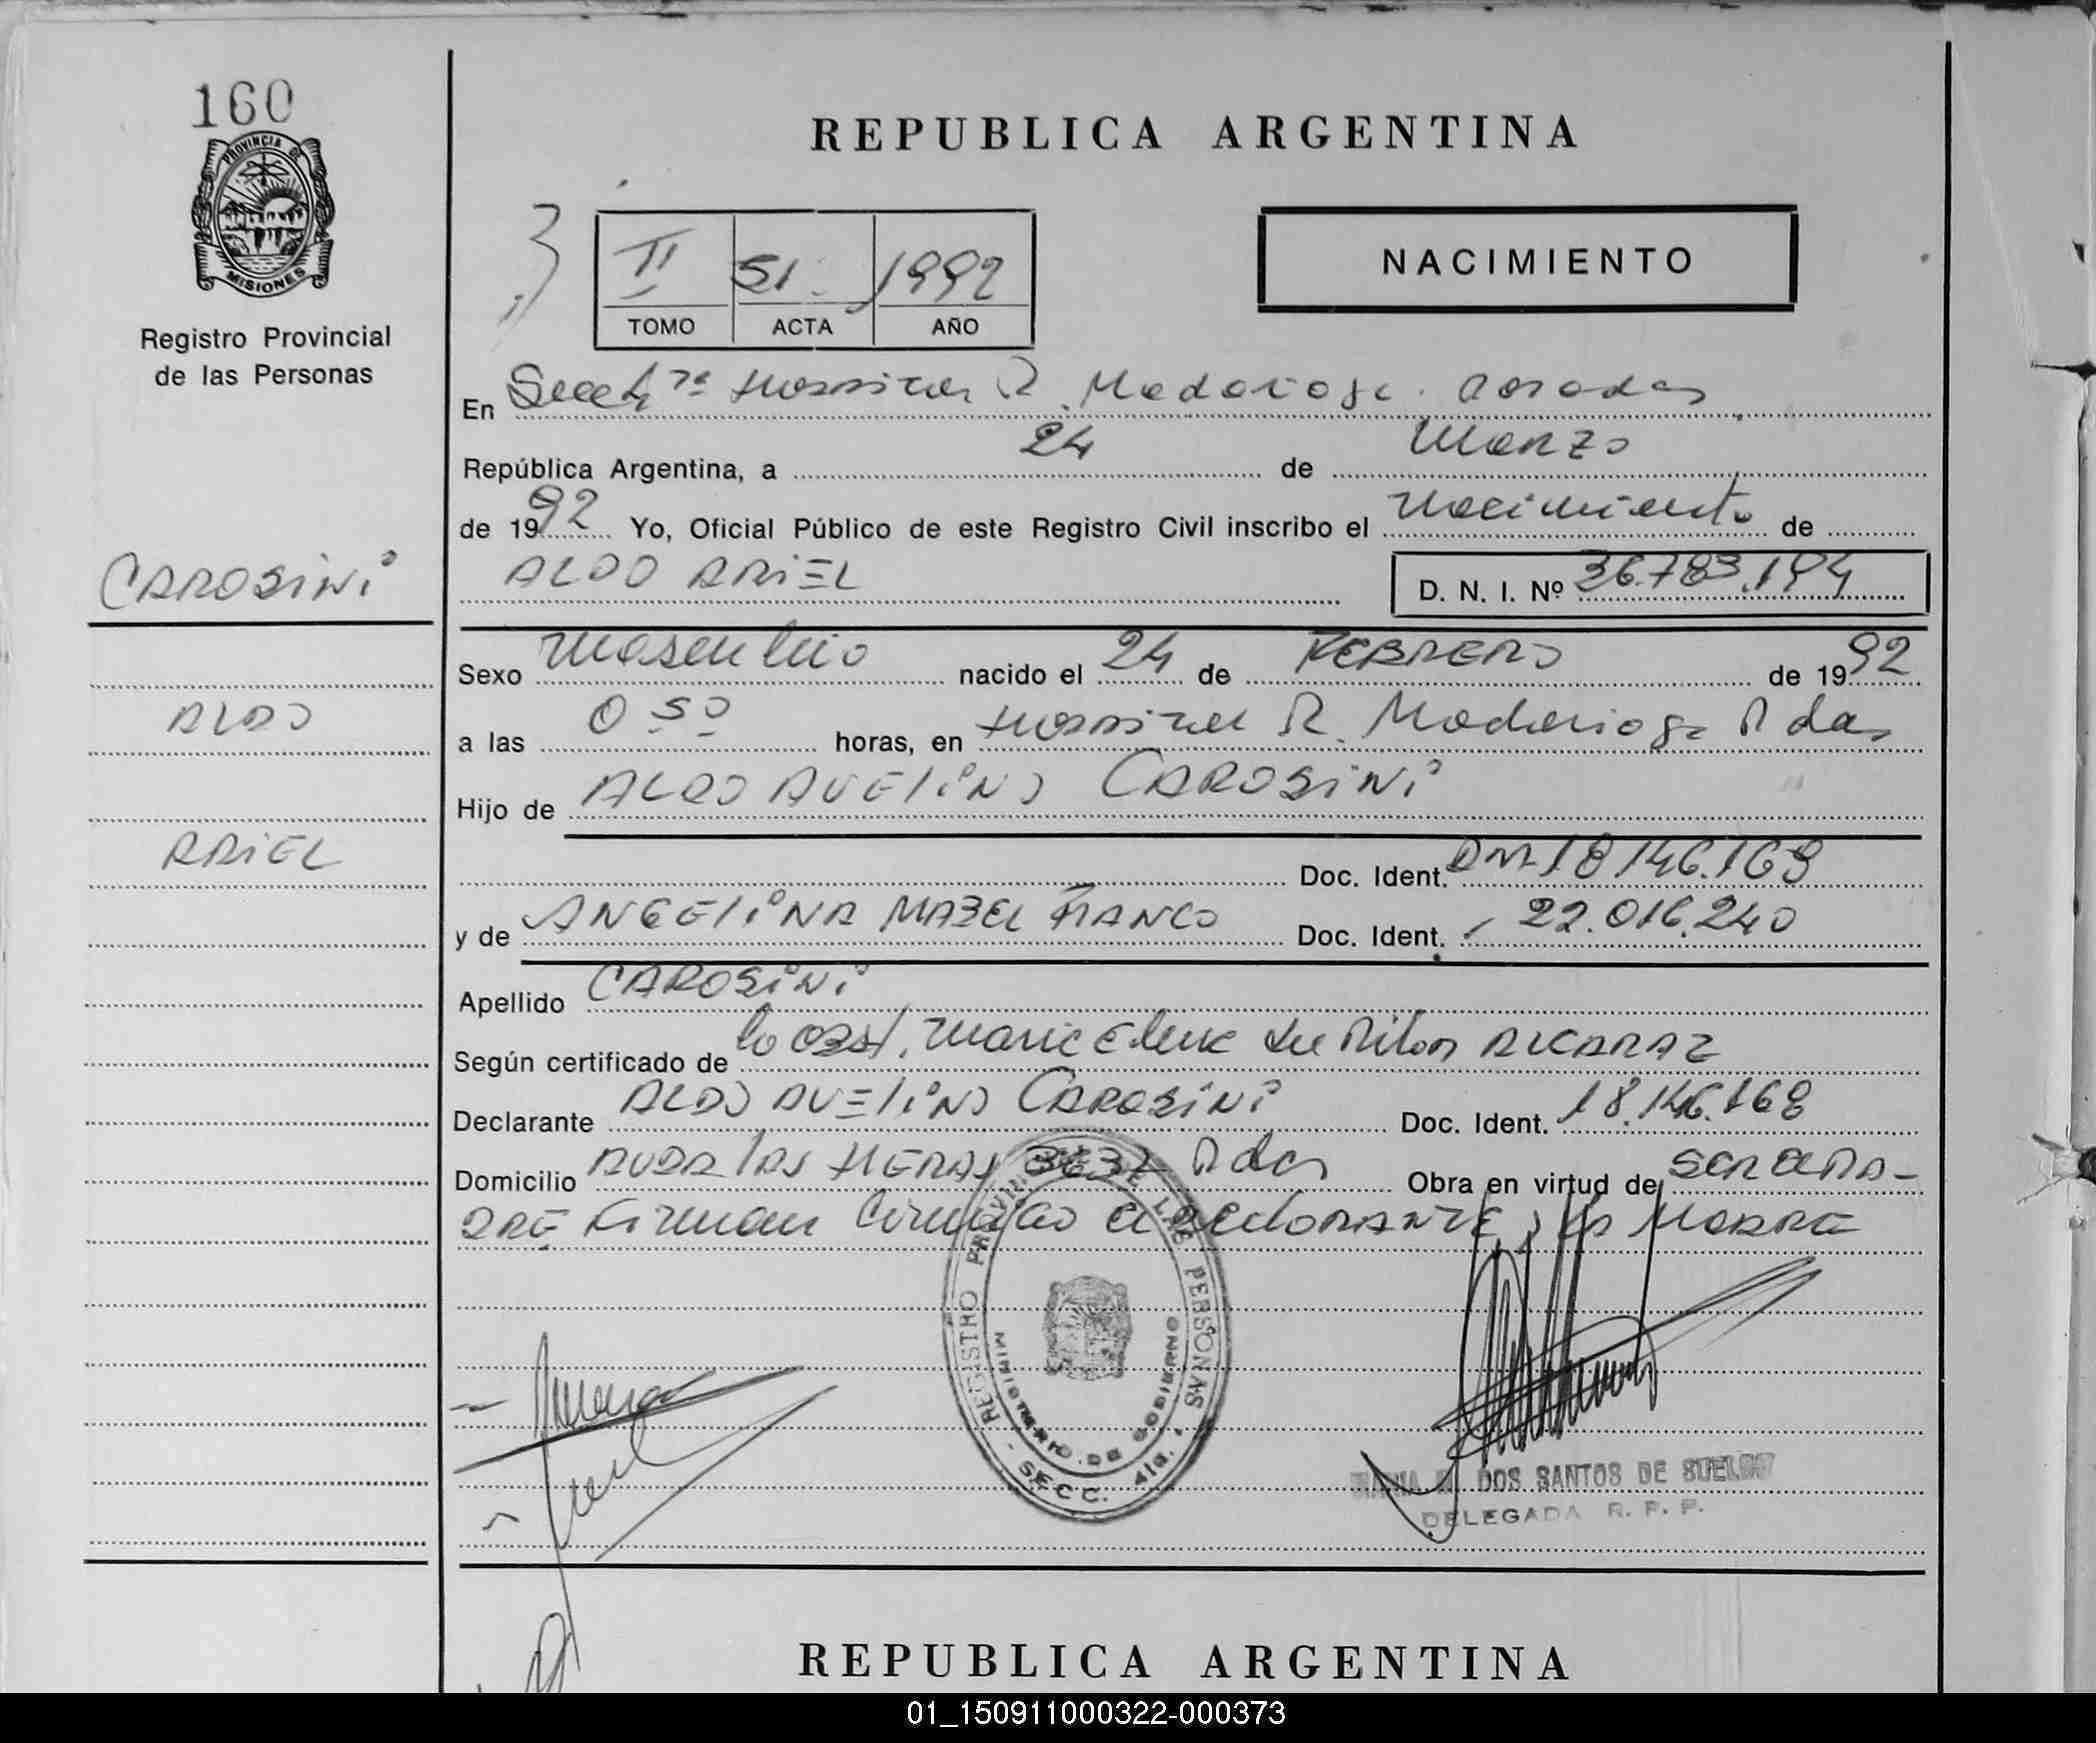 160
PROVINCIA DE
MISIONES
Registro Provincial
de las Personas
REPUBLICA ARGENTINA
II 51 1992
TOMO ACTA AÑO
NACIMIENTO
En Secc 4ta Hospital R. Madariaga. Posadas
República Argentina, a 24 de Marzo
de 1992 Yo, Oficial Público de este Registro Civil inscribo el Nacimiento de
ALDO ARIEL D. N. I. Nº 36.783.194
CAROSINI
Sexo Masculino nacido el 24 de FEBRERO de 1992
ALDO
a las 0 50 horas, en Hospital R. Madariaga Pdas
Hijo de ALDO AVELINO CAROSINI
ARIEL
Doc. Ident. DNI 18.146.168
y de ANGELINA MABEL FRANCO Doc. Ident. 22.016.240
Apellido CAROSINI
Según certificado de la Obst. Maria Elena ALCARAZ
Declarante ALDO AVELINO CAROSINI Doc. Ident. 18.146.168
Domicilio AVDA LAS HERAS 3632 Pdas Obra en virtud de SER EL PA-
DRE Firman Conmigo el declarante y la MADRE
REGISTRO PROVINCIAL DE LAS PERSONAS
MINISTERIO DE GOBIERNO
- SECC. 4ta.
DOS SANTOS DE SUELDO
DELEGADA R. P. P.
REPUBLICA ARGENTINA
01_150911000322-000373